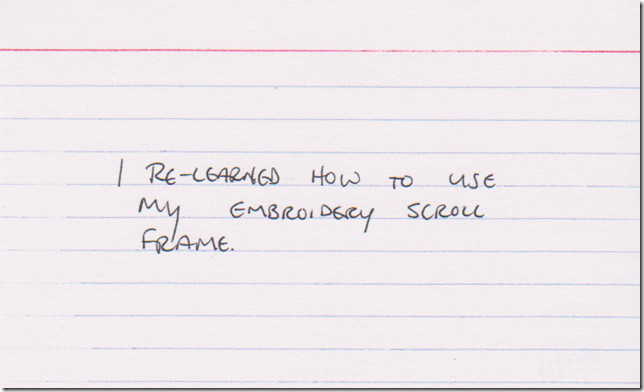 I RE-LEARNED HOW TO USE
MY EMBROIDERY SCROLL
FRAME.